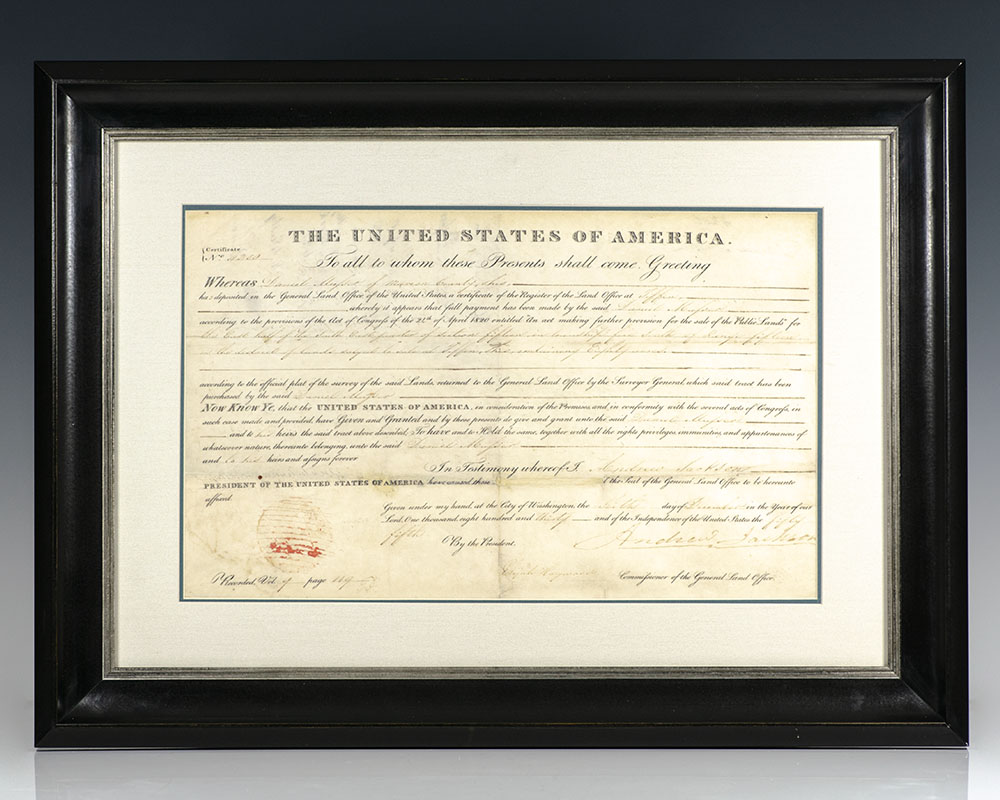 THE UNITED STATES OF AMERICA.
Certificate
No.
To all to whom these Presents shall come, Greeting
Whereas Daniel County, Ohio
has deposited in the General Land Office of the United States, a certificate of the Register of the Land Office at Tiffin
whereby it appears that full payment has been made by the said Daniel
according to the provisions of the Act of Congress of the 24th of April 1820 entitled "An act making further provision for the sale of the Public Lands" for
the East half of the South East quarter of in Township South of Range fifteen
in the district of lands subject to sale at Tiffin, Ohio, containing Eighty acres
according to the official plat of the survey of the said Lands, returned to the General Land Office by the Surveyor General, which said tract has been
purchased by the said Daniel
Now Know Ye, that the UNITED STATES OF AMERICA, in consideration of the Premises, and in conformity with the several acts of Congress, in
such case made and provided, have Given and Granted and by these presents do give and grant unto the said
and to his heirs the said tract above described; To have and to Hold the same, together with all the rights privileges, immunities, and appurtenances of
whatsoever nature, thereunto belonging, unto the said Daniel
and to his heirs and assigns forever
In Testimony whereof I, Andrew Jackson
PRESIDENT OF THE UNITED STATES OF AMERICA have caused these the Seal of the General Land Office to be hereunto
affixed.
Given under my hand, at the City of Washington, the day of December in the Year of our
Lord, One thousand, eight hundred and thirty and of the Independence of the United States the fifty
fifth
By the President. Andrew Jackson
Commissioner of the General Land Office.
Recorded, Vol. page